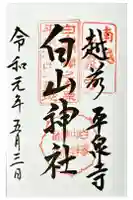 越前 平泉寺
白山神社
令和元年五月三日